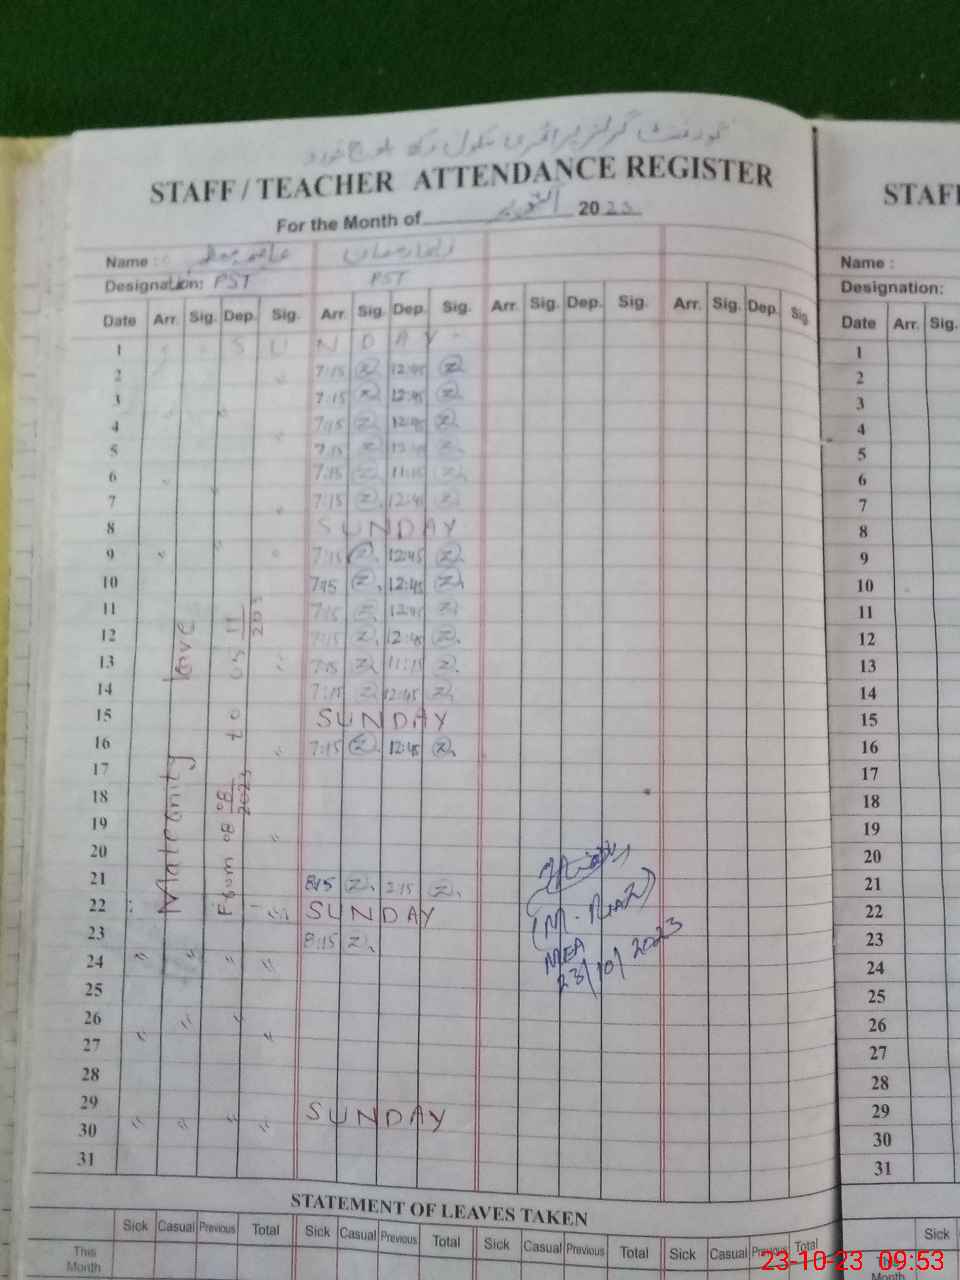 گورنمنٹ گرلز پرائمری سکول
STAFF / TEACHER ATTENDANCE REGISTER
For the Month of اکتوبر 2023
Name :
Designation: PST PST
Date Arr. Sig. Dep. Sig. Arr. Sig. Dep. Sig. Arr. Sig. Dep. Sig. Arr. Sig. Dep. Sig.
1 SUNDAY
2 7:15 Z 12:45 Z
3 7:15 Z 12:45 Z
4 7:15 Z 12:45 Z
5 7:15 Z 12:45 Z
6 7:15 Z 11:15 Z
7 7:15 Z 12:45 Z
8 SUNDAY
9 7:15 Z 12:45 Z
10 7:15 Z 12:45 Z
11 7:15 Z 12:45 Z
12 7:15 Z 12:45 Z
13 7:15 Z 11:15 Z
14 7:15 Z 12:45 Z
15 SUNDAY
16 7:15 Z 12:45 Z
17
18
19
20
21 8:15 Z 2:15 Z
22 SUNDAY
23 8:15 Z
24
25
26
27
28
29 SUNDAY
30
31
Maternity leave
From 08 08 2023 to 05 11
(M. Riaz)
MEA
23/10/2023
STATEMENT OF LEAVES TAKEN
Sick Casual Previous Total Sick Casual Previous Total Sick Casual Previous Total Sick Casual Previous Total
This Month
STAF
Name :
Designation:
Date Arr. Sig.
1
2
3
4
5
6
7
8
9
10
11
12
13
14
15
16
17
18
19
20
21
22
23
24
25
26
27
28
29
30
31
Sick
This
Month
23-10-23 09:53